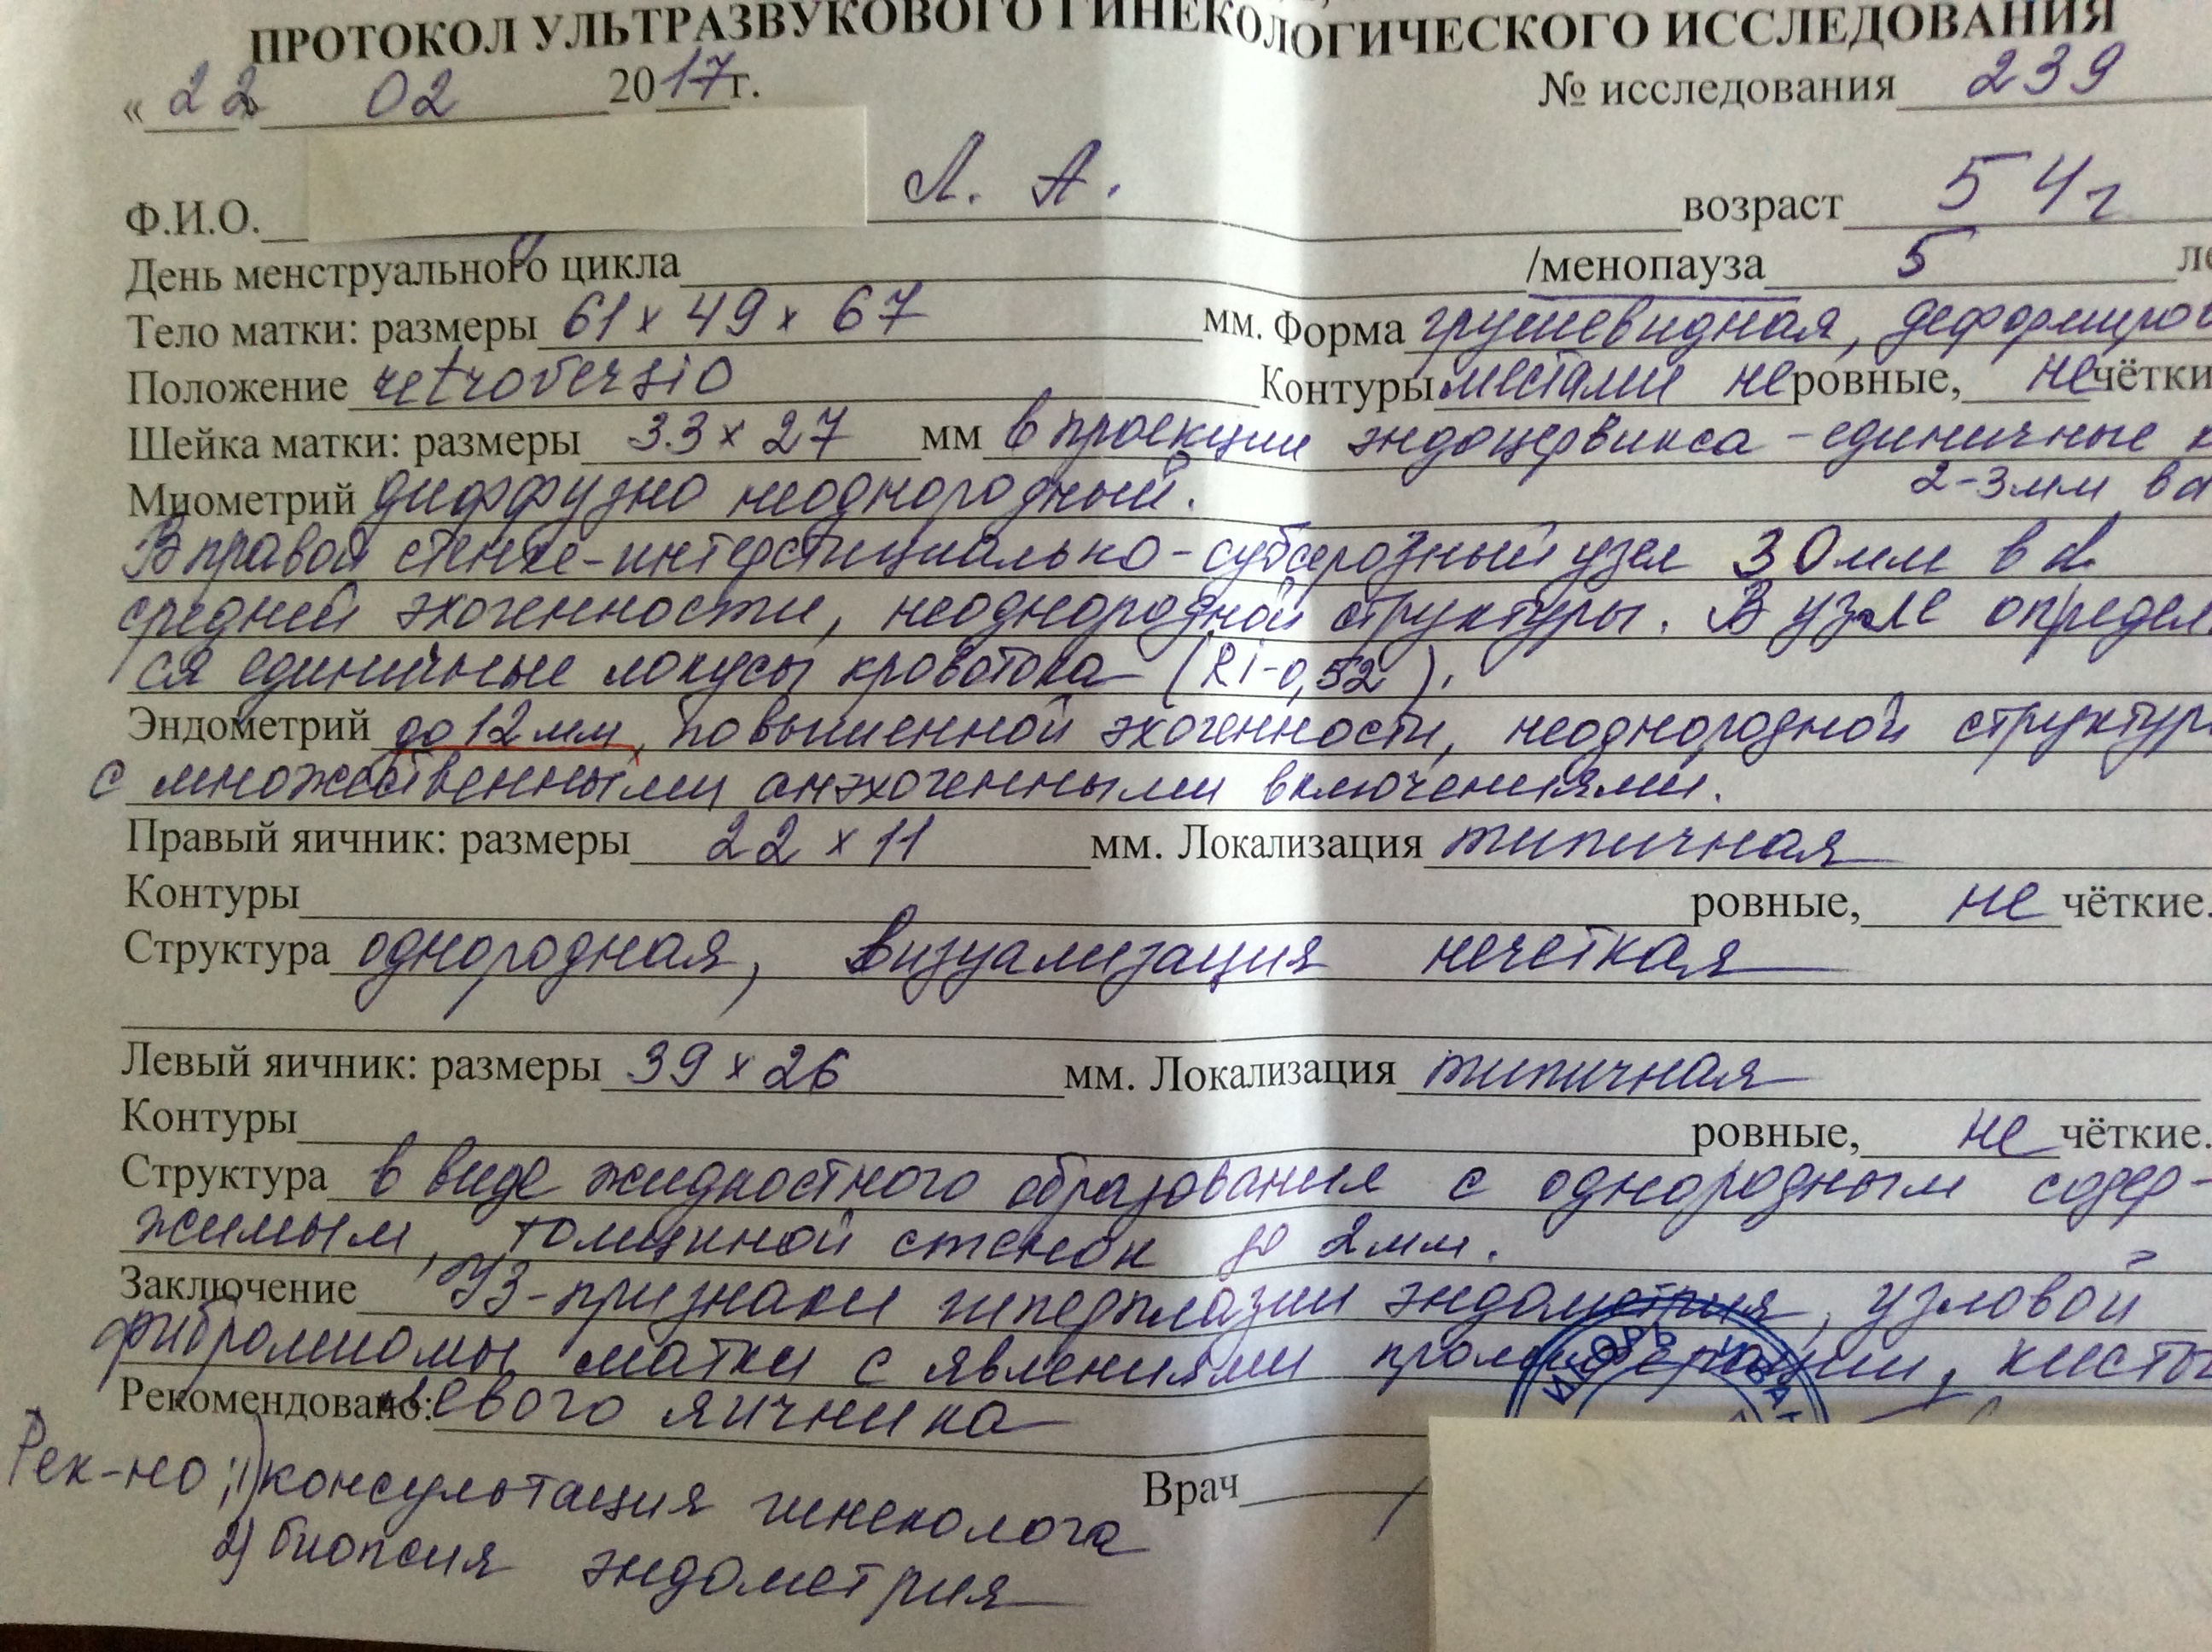 ПРОТОКОЛ УЛЬТРАЗВУКОВОГО ГИНЕКОЛОГИЧЕСКОГО ИССЛЕДОВАНИЯ
«22 02 2017г. № исследования 239
Ф.И.О. Л. А. возраст 54г
День менструального цикла /менопауза 5 ле
Тело матки: размеры 61 x 49 x 67 мм. Форма грушевидная, деформиров
Положение retroversio Контуры местами неровные, нечётки
Шейка матки: размеры 33 x 27 мм в проекции эндоцервикса - единичные к
2-3мм в d
Миометрий диффузно неоднородный.
В правой стенке - интерстициально-субсерозный узел 30мм в d.
средней эхогенности, неоднородной структуры. В узле определ
ся единичные локусы кровотока (Ri-0,52).
Эндометрий до 12 мм, повышенной эхогенности, неоднородной структуры
с множественными анэхогенными включениями.
Правый яичник: размеры 22 x 11 мм. Локализация типичная
Контуры ровные, не чёткие.
Структура однородная, визуализация нечеткая
Левый яичник: размеры 39 x 26 мм. Локализация типичная
Контуры ровные, не чёткие.
Структура в виде жидкостного образования с однородным содер-
жимым, толщиной стенок до 2мм.
Заключение УЗ-признаки гиперплазии эндометрия, узловой
фибромиомы матки с явлениями пролиферации, кисты
Рекомендовано: левого яичника
Рек-но: 1) консультация гинеколога
Врач
2) биопсия эндометрия